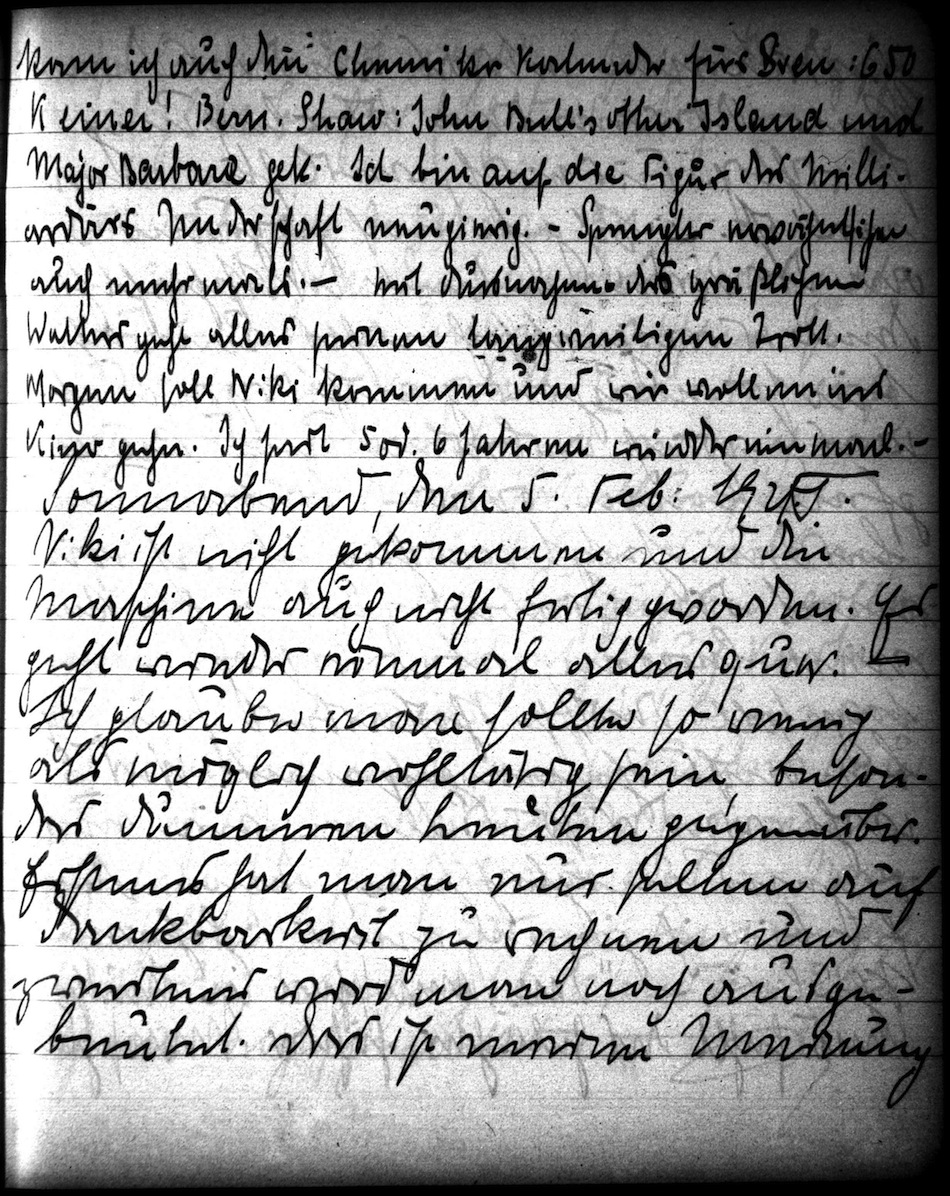 kam ich auch den Chemiker Kalender für Bren :650
Keiner! Bern. Shaw: John Bull's other Island und
Major Barbara gek. Ich bin auf die Figur des Milli-
ardärs Underschaft neugierig. - Spengler erwähnt ihn
auch mehrmals. — Mit Ausnahme des gräßlichen
Wetters geht alles seinen langweiligen Trott.
Morgen soll Niki kommen und wir wollen ins
Kino gehn. Ich seit 5 od. 6 Jahren wieder einmal. -
Sonnabend, den 5. Feb: 1921.
Niki ist nicht gekommen und die
Maschine auch nicht fertig geworden. Es
geht wieder einmal alles quer. —
Ich glaube man sollte so wenig
als möglich wohltätig sein, beson-
ders dummen Leuten gegenüber.
Erstens hat man nur selten auf
Dankbarkeit zu rechnen und
zweitens wird man noch ausge-
beutet. Das ist meine Meinung